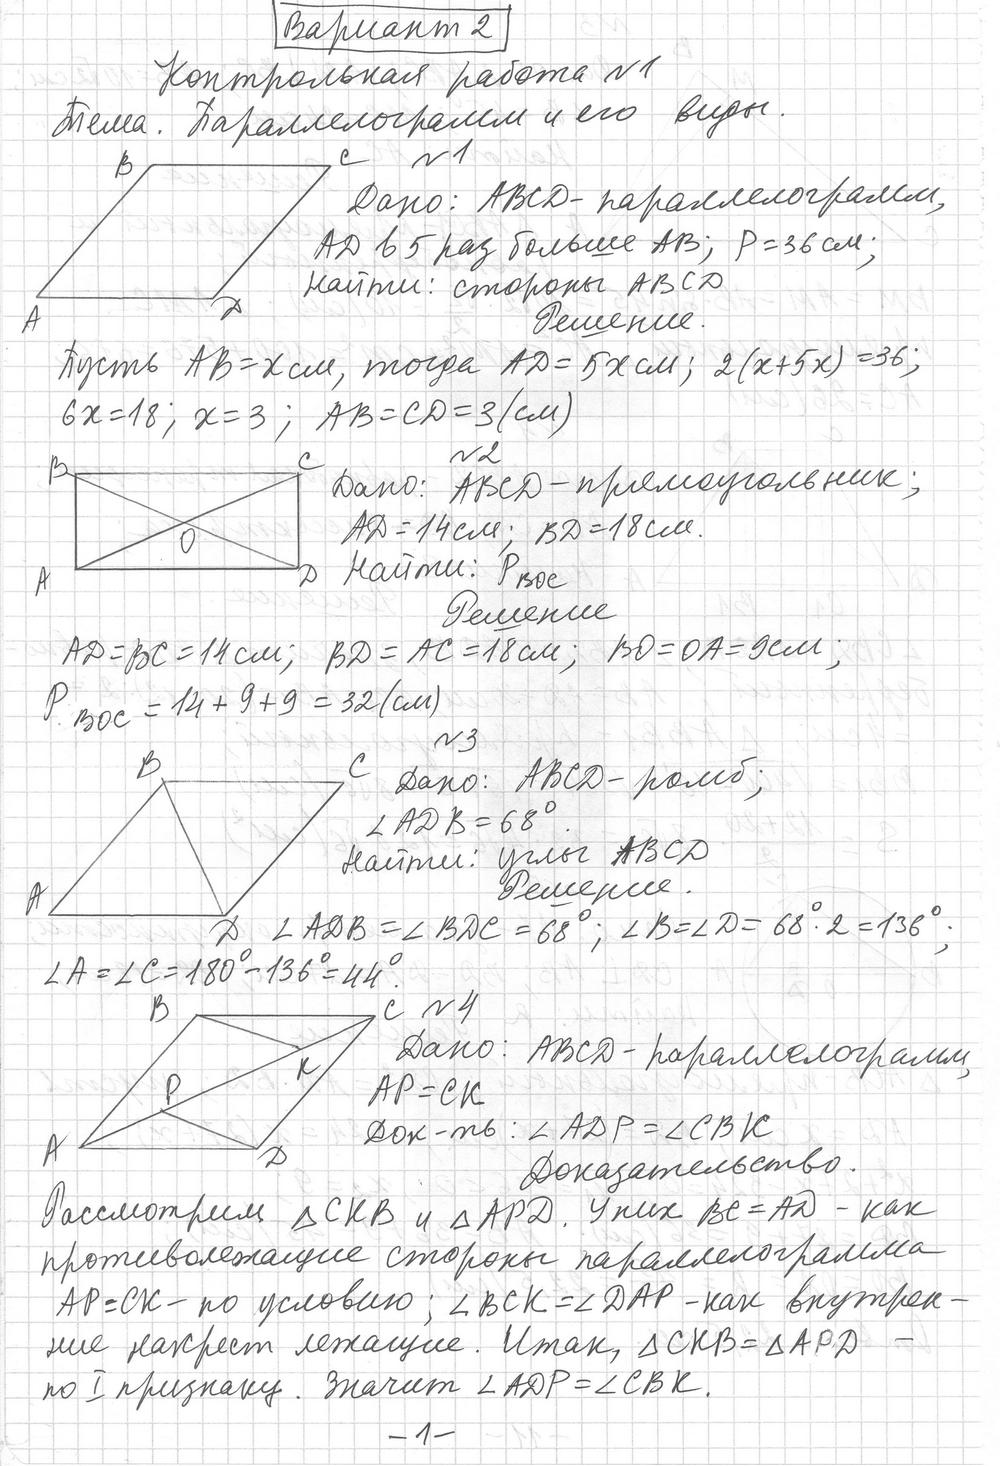 Вариант 2
Контрольная работа №1
Тема. Параллелограмм и его виды.
B C №1
Дано: ABCD - параллелограмм,
AD в 5 раз больше AB; P=36 см;
Найти: стороны ABCD
A D
Решение.
Пусть AB=x см, тогда AD=5x см; 2(x+5x)=36;
6x=18; x=3; AB=CD=3(см)
№2
B C Дано: ABCD - прямоугольник;
AD=14 см; BD=18 см.
O
A D Найти: P BOC
Решение
AD=BC=14 см; BD=AC=18 см; BO=OA=9 см;
P BOC = 14+9+9=32(см)
№3
B C Дано: ABCD - ромб;
∠ADB=68°.
Найти: углы ABCD
A Решение.
D ∠ADB=∠BDC=68°; ∠B=∠D=68°·2=136°;
∠A=∠C=180°-136°=44°.
B C №4
Дано: ABCD - параллелограмм,
K
P AP=CK
Док-ть: ∠ADP=∠CBK
A D
Доказательство.
Рассмотрим △CKB и △APD. У них BC=AD - как
противолежащие стороны параллелограмма
AP=CK - по условию; ∠BCK=∠DAP - как внутрен-
ние накрест лежащие. Итак, △CKB=△APD -
по I признаку. Значит ∠ADP=∠CBK.
-1-